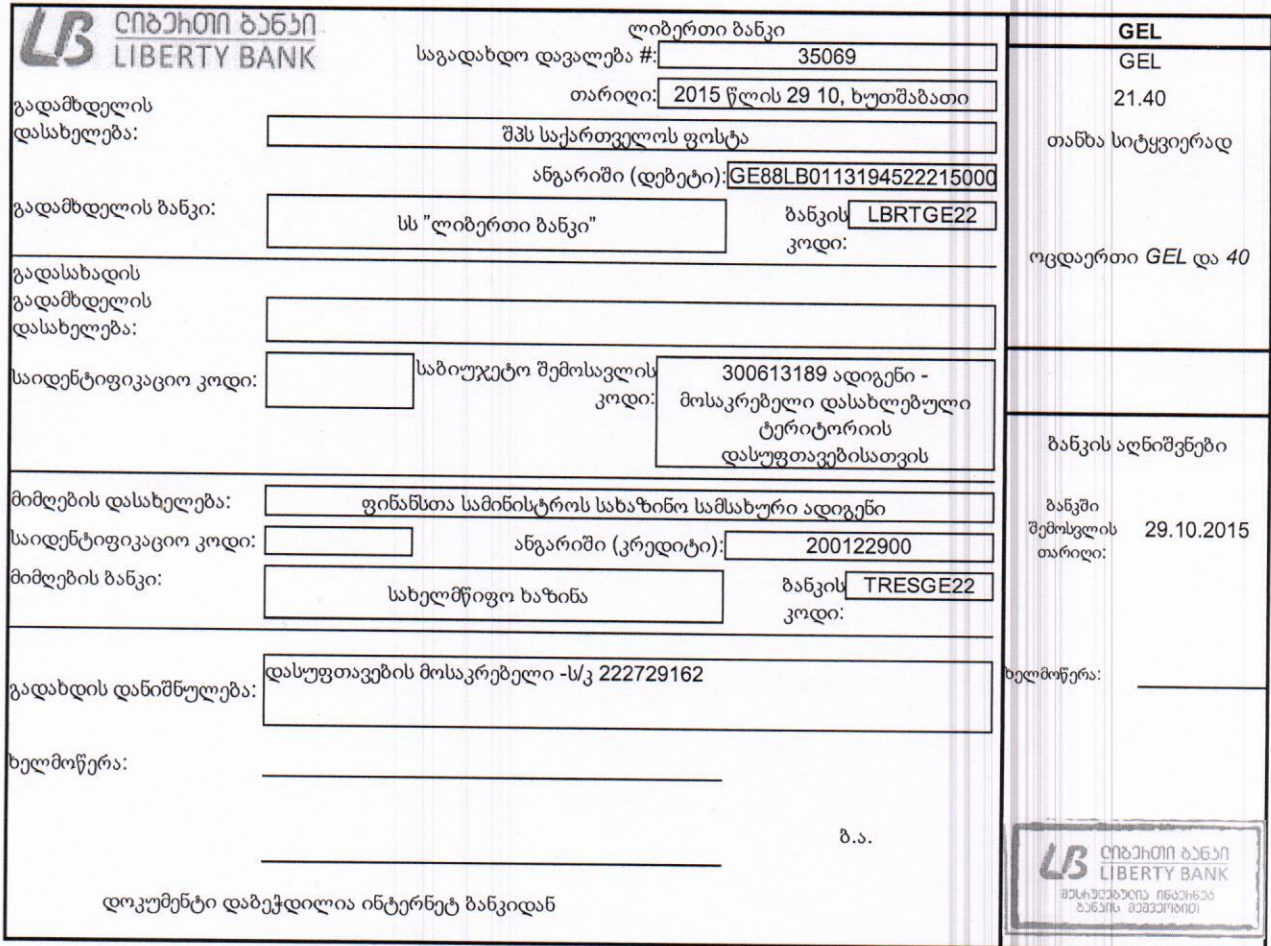 ლიბერთი ბანკი
LIBERTY BANK
ლიბერთი ბანკი
საგადახდო დავალება #: 35069
თარიღი: 2015 წლის 29 10, ხუთშაბათი
გადამხდელის
დასახელება: შპს საქართველოს ფოსტა
ანგარიში (დებეტი): GE88LB0113194522215000
გადამხდელის ბანკი: სს "ლიბერთი ბანკი" ბანკის LBRTGE22
კოდი:
გადასახადის
გადამხდელის
დასახელება:
საიდენტიფიკაციო კოდი: საბიუჯეტო შემოსავლის
კოდი:
300613189 ადიგენი -
მოსაკრებელი დასახლებული
ტერიტორიის
დასუფთავებისათვის
მიმღების დასახელება: ფინანსთა სამინისტროს სახაზინო სამსახური ადიგენი
საიდენტიფიკაციო კოდი: ანგარიში (კრედიტი): 200122900
მიმღების ბანკი: სახელმწიფო ხაზინა ბანკის TRESGE22
კოდი:
გადახდის დანიშნულება: დასუფთავების მოსაკრებელი -ს/კ 222729162
ხელმოწერა:
ბ.ა.
დოკუმენტი დაბეჭდილია ინტერნეტ ბანკიდან
GEL
GEL
21.40
თანხა სიტყვიერად
ოცდაერთი GEL და 40
ბანკის აღნიშვნები
ბანკში
შემოსვლის 29.10.2015
თარიღი:
ხელმოწერა:
ლიბერთი ბანკი
LIBERTY BANK
შესრულებულია ინტერნეტ
ბანკის მეშვეობით